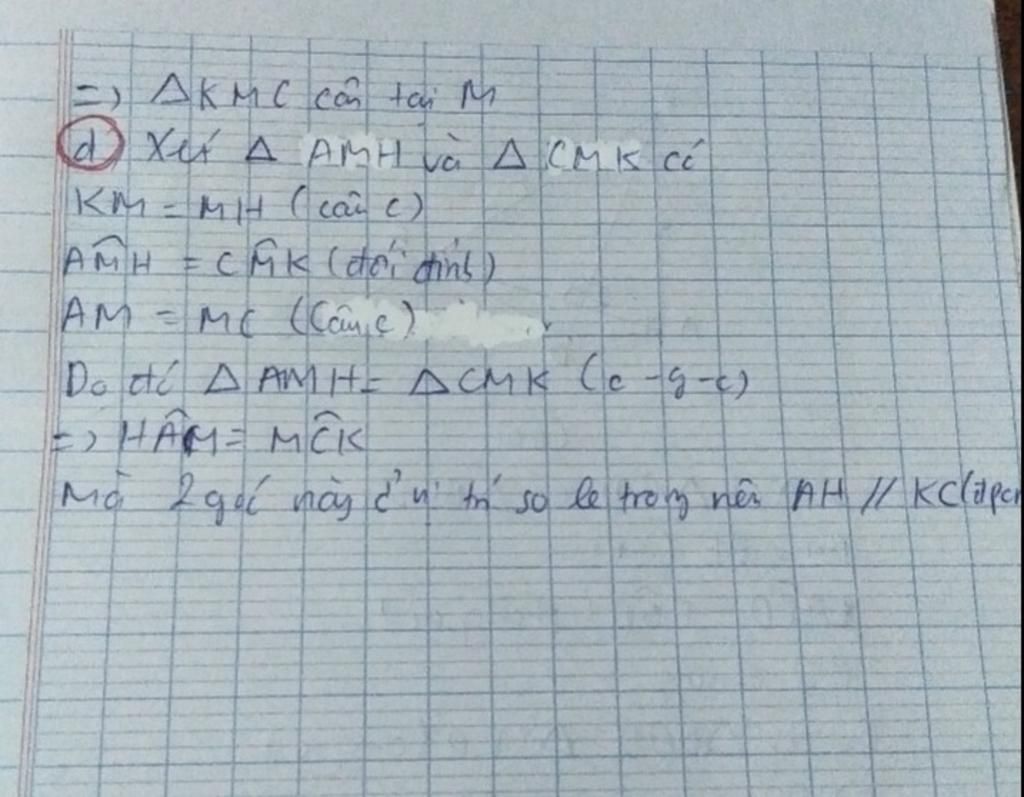 => ΔKMC cân tại M
d) Xét Δ AMH và Δ CMK có
KM = MH (câu c)
AM̂H = CM̂K (đối đỉnh)
AM = MC (Câu c)
Do đó Δ AMH = Δ CMK (c-g-c)
=> HÂM = MĈK
Mà 2 góc này ở vị trí so le trong nên AH // KC (đpcm